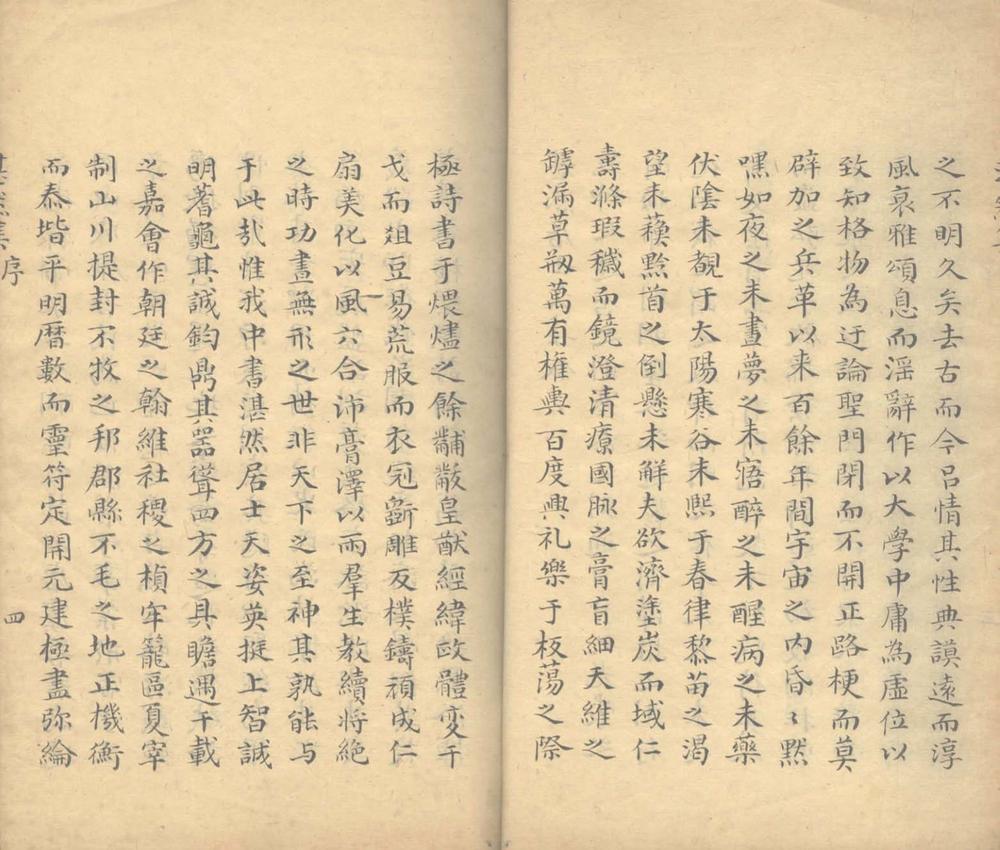 之不明久矣去古而今呂情其性典謨遠而淳
風裒雅頌息而淫辭作以大學中庸為虛位以
致知格物為迂論聖門閉而不開正路梗而莫
辟加之兵革以来百餘年間宇宙之内昏〻默
嘿如夜之未晝夢之未寤醉之未醒病之未藥
伏陰未覩于太陽寒谷未熙于春律黎苗之渴
望未蘓黔首之倒懸未觧夫欲濟塗炭而域仁
壽滌瑕穢而鏡澄清療國脉之膏盲細天維之
罅漏草刱萬有権輿百度興礼樂于板蕩之際
極詩書于煨燼之餘黼黻皇猷經緯政體变干
戈而俎豆易荒服而衣冠斵雕反樸鑄頑成仁
扇美化以風六合沛膏澤以雨羣生教續将絶
之時功晝無形之世非天下之至神其孰能与
于此㢤惟我中書湛然居士天姿英挺上智誠
明著龜其誠鈞鼎其噐聳四方之具瞻遇千載
之嘉會作朝廷之翰維社稷之楨牢籠區夏宰
制山川提封不牧之邦郡縣不毛之地正機衡
而泰堦平明暦數而靈符定開元建極盡弥綸
序
四